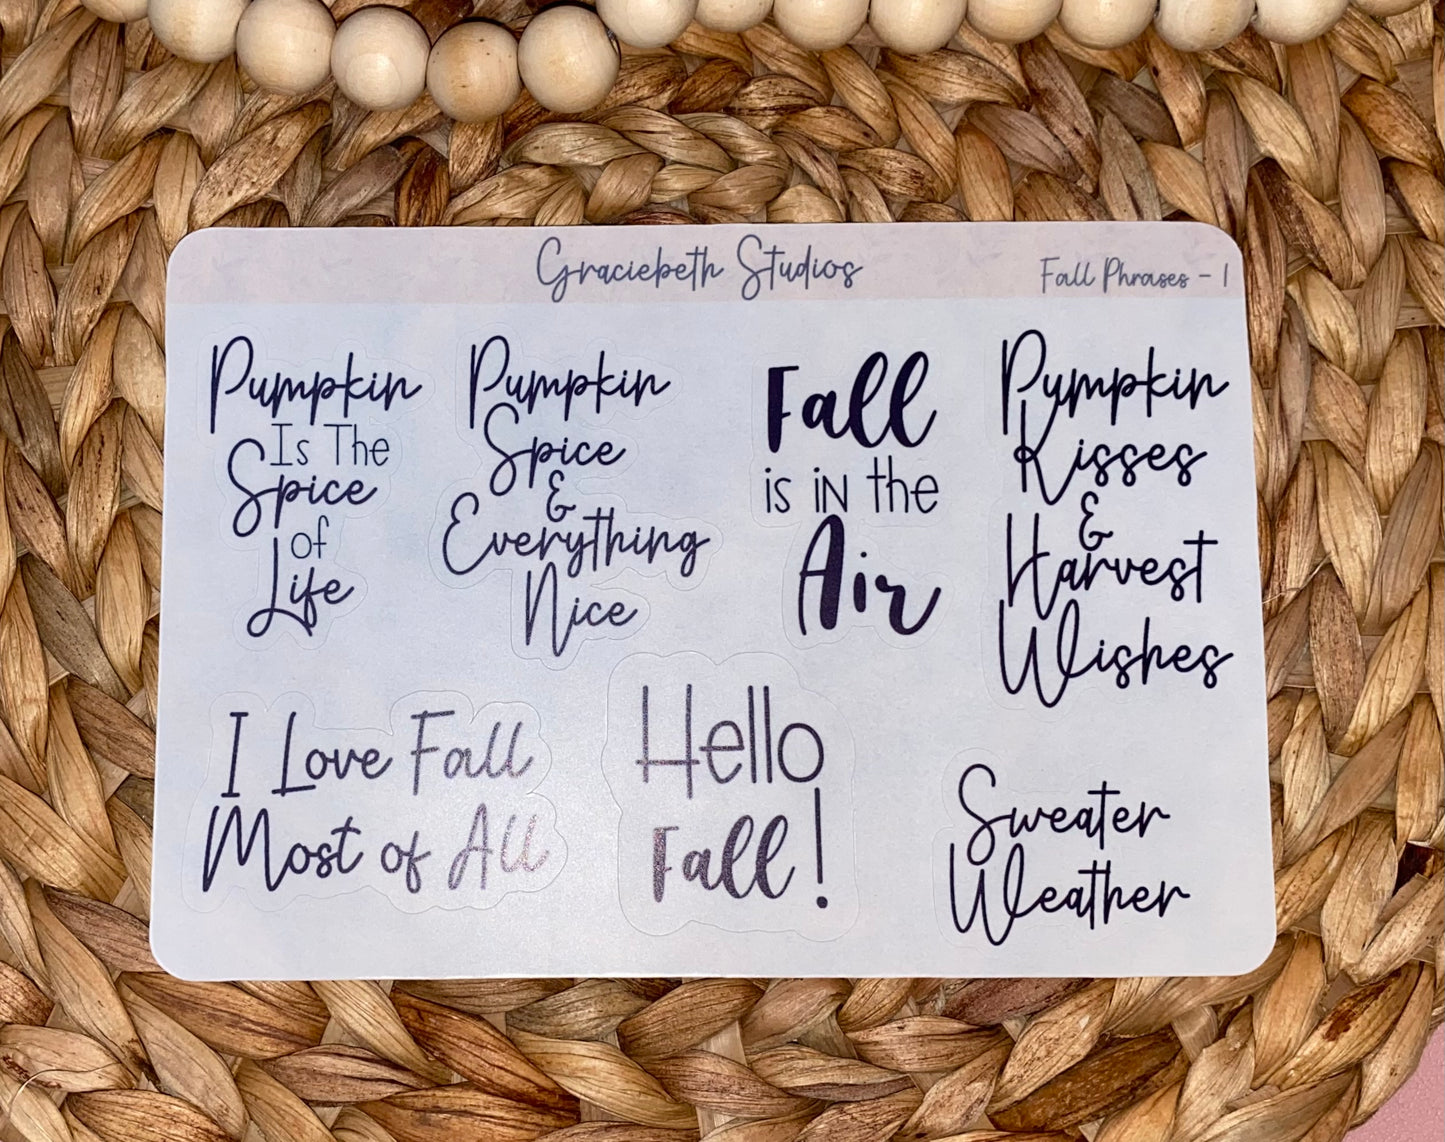 Graciebeth Studios
Fall Phrases - 1
Pumpkin
Is The
Spice
of
Life
Pumpkin
Spice
&
Everything
Nice
Fall
is in the
Air
Pumpkin
Kisses
&
Harvest
Wishes
I Love Fall
Most of All
Hello
Fall!
Sweater
Weather